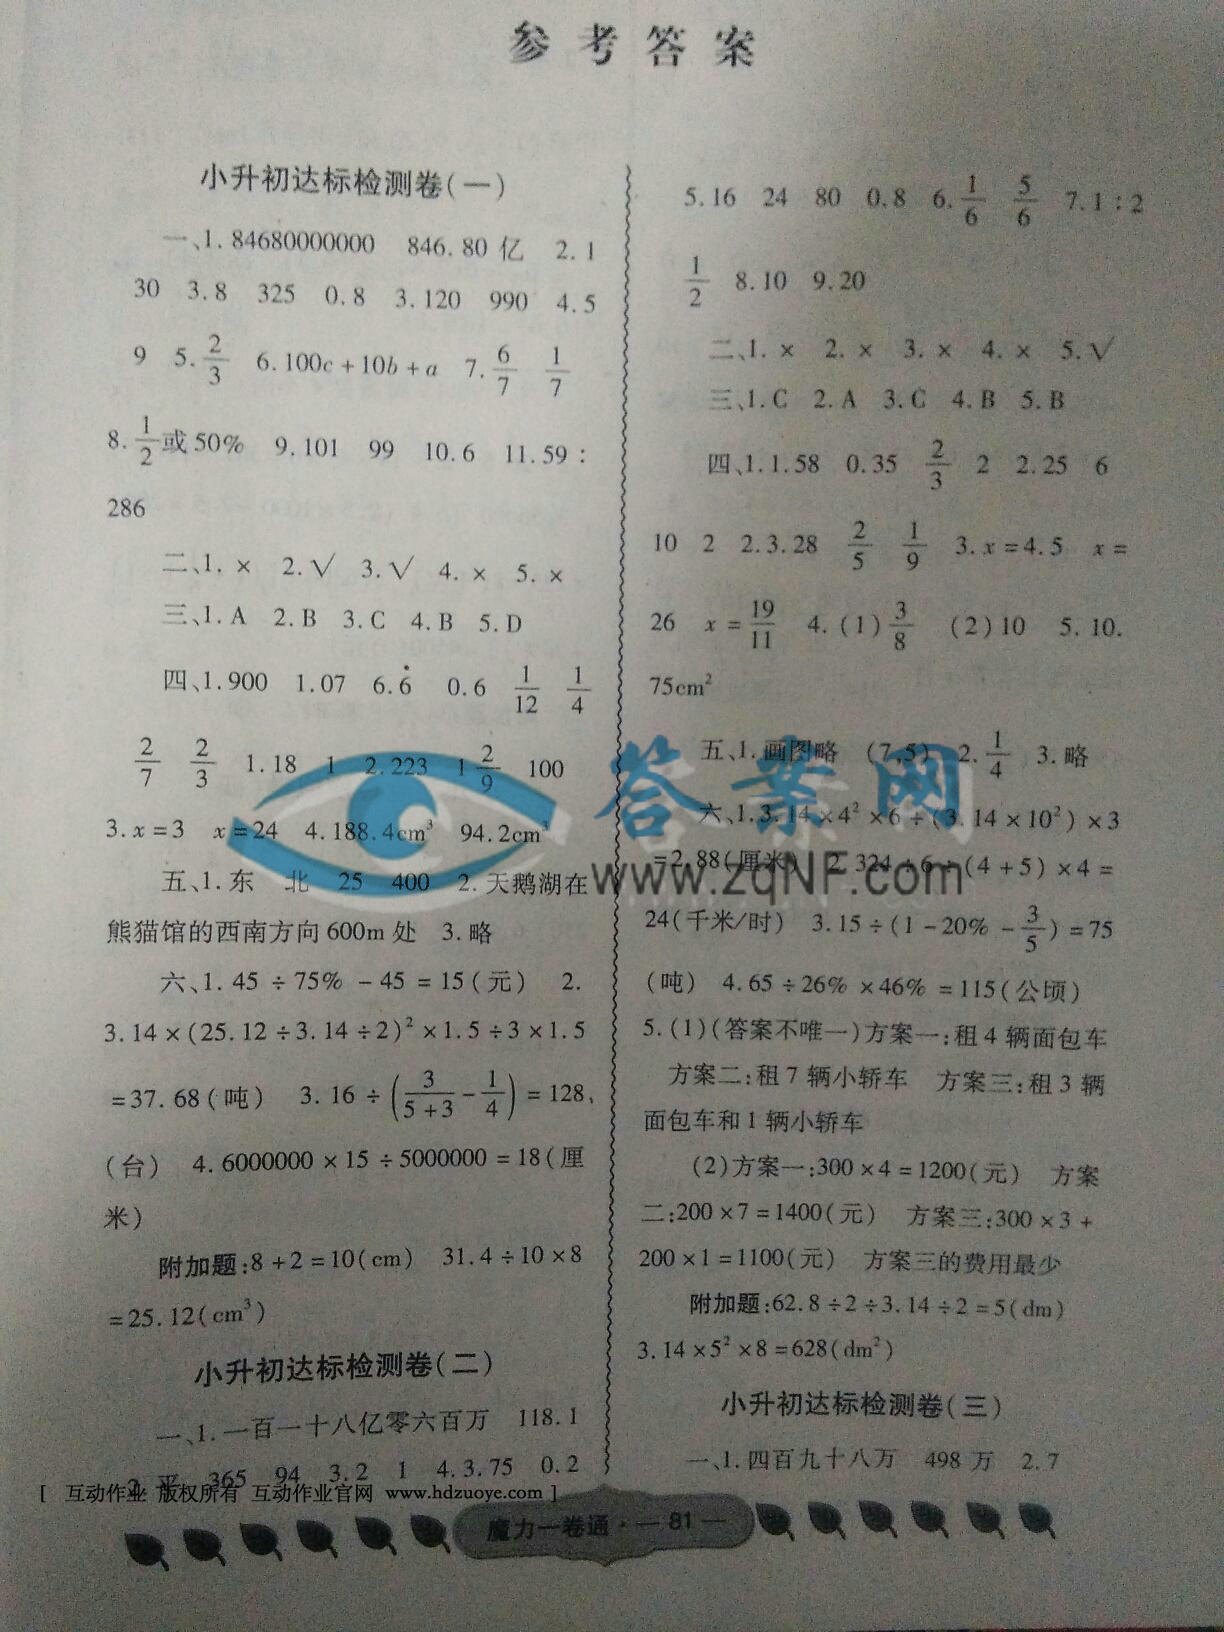 参考答案
小升初达标检测卷(一)
一、1.84680000000 846.80亿 2.1
30 3.8 325 0.8 3.120 990 4.5
9 5.2/3 6.100c+10b+a 7.6/7 1/7
8.1/2或50% 9.101 99 10.6 11.59:
286
二、1.× 2.√ 3.√ 4.× 5.×
三、1.A 2.B 3.C 4.B 5.D
四、1.900 1.07 6.6̇ 0.6 1/12 1/4
2/7 2/3 1.18 1 2.223 1 2/9 100
3.x=3 x=24 4.188.4cm³ 94.2cm³
五、1.东 北 25 400 2.天鹅湖在
熊猫馆的西南方向600m处 3.略
六、1.45÷75%-45=15(元) 2.
3.14×(25.12÷3.14÷2)²×1.5÷3×1.5
=37.68(吨) 3.16÷(3/(5+3)-1/4)=128,
(台) 4.6000000×15÷5000000=18(厘
米)
附加题:8+2=10(cm) 31.4÷10×8
=25.12(cm³)
小升初达标检测卷(二)
一、1.一百一十八亿零六百万 118.1
2.平 365 94 3.2 1 4.3.75 0.2
5.16 24 80 0.8 6.1/6 5/6 7.1:2
1/2 8.10 9.20
二、1.× 2.× 3.× 4.× 5.√
三、1.C 2.A 3.C 4.B 5.B
四、1.1.58 0.35 2/3 2 2.25 6
10 2 2.3.28 2/5 1/9 3.x=4.5 x=
26 x=19/11 4.(1)3/8 (2)10 5.10.
75cm²
五、1.画图略 (7,5) 2.1/4 3.略
六、1.3.14×4²×6÷(3.14×10²)×3
=2.88(厘米) 2.324÷6÷(4+5)×4=
24(千米/时) 3.15÷(1-20%-3/5)=75
(吨) 4.65÷26%×46%=115(公顷)
5.(1)(答案不唯一)方案一:租4辆面包车
方案二:租7辆小轿车 方案三:租3辆
面包车和1辆小轿车
(2)方案一:300×4=1200(元) 方案
二:200×7=1400(元) 方案三:300×3+
200×1=1100(元) 方案三的费用最少
附加题:62.8÷2÷3.14÷2=5(dm)
3.14×5²×8=628(dm²)
小升初达标检测卷(三)
一、1.四百九十八万 498万 2.7
答案网
www.zqNF.com
[ 互动作业 版权所有 互动作业官网 www.hdzuoye.com ]
魔力一卷通·—81—